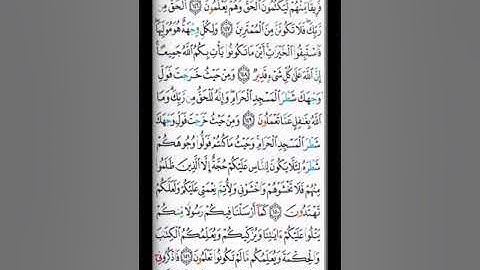 فَرِيقًا مِّنْهُمْ لَيَكْتُمُونَ الْحَقَّ وَهُمْ يَعْلَمُونَ ١٤٦ الْحَقُّ مِن
رَّبِّكَ فَلَا تَكُونَنَّ مِنَ الْمُمْتَرِينَ ١٤٧ وَلِكُلٍّ وِجْهَةٌ هُوَ مُوَلِّيهَا
فَاسْتَبِقُوا الْخَيْرَاتِ أَيْنَ مَا تَكُونُوا يَأْتِ بِكُمُ اللَّهُ جَمِيعًا
إِنَّ اللَّهَ عَلَىٰ كُلِّ شَيْءٍ قَدِيرٌ ١٤٨ وَمِنْ حَيْثُ خَرَجْتَ فَوَلِّ
وَجْهَكَ شَطْرَ الْمَسْجِدِ الْحَرَامِ وَإِنَّهُ لَلْحَقُّ مِن رَّبِّكَ وَمَا
اللَّهُ بِغَافِلٍ عَمَّا تَعْمَلُونَ ١٤٩ وَمِنْ حَيْثُ خَرَجْتَ فَوَلِّ وَجْهَكَ
شَطْرَ الْمَسْجِدِ الْحَرَامِ وَحَيْثُ مَا كُنتُمْ فَوَلُّوا وُجُوهَكُمْ
شَطْرَهُ لِئَلَّا يَكُونَ لِلنَّاسِ عَلَيْكُمْ حُجَّةٌ إِلَّا الَّذِينَ ظَلَمُوا
مِنْهُمْ فَلَا تَخْشَوْهُمْ وَاخْشَوْنِي وَلِأُتِمَّ نِعْمَتِي عَلَيْكُمْ وَلَعَلَّكُمْ
تَهْتَدُونَ ١٥٠ كَمَا أَرْسَلْنَا فِيكُمْ رَسُولًا مِّنكُمْ
يَتْلُو عَلَيْكُمْ آيَاتِنَا وَيُزَكِّيكُمْ وَيُعَلِّمُكُمُ الْكِتَابَ
وَالْحِكْمَةَ وَيُعَلِّمُكُم مَّا لَمْ تَكُونُوا تَعْلَمُونَ ١٥١ فَاذْكُرُونِي